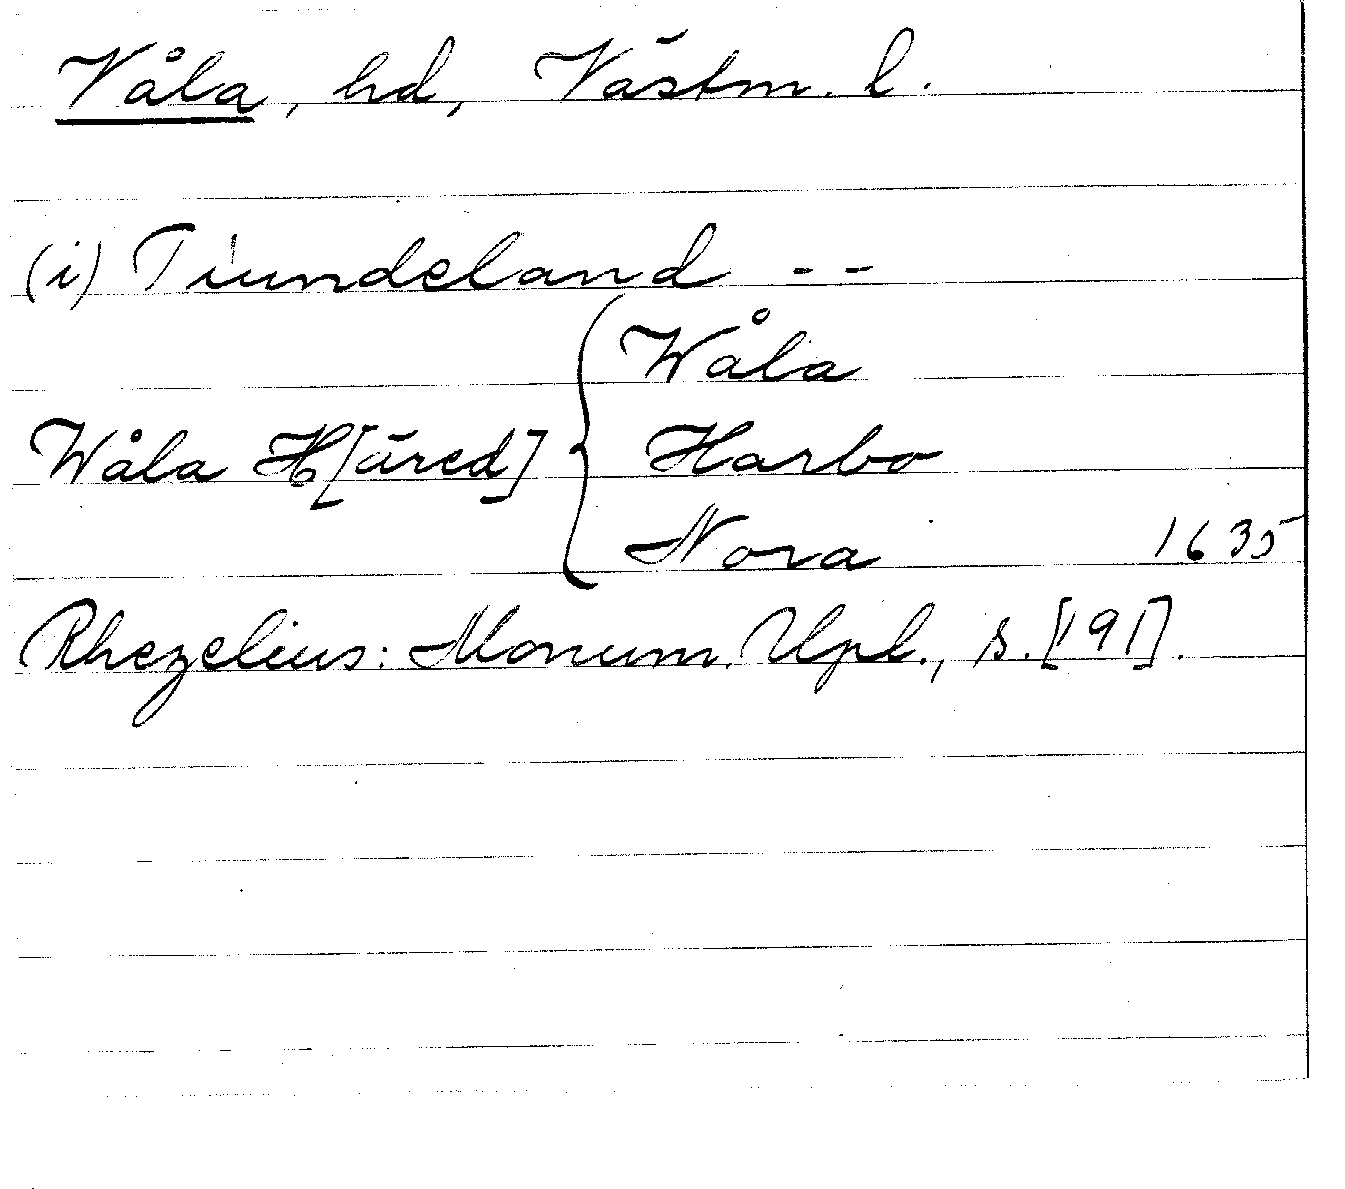 Våla, hd, Västm. l.
(i) Tiundeland - -
Wåla H[äred] { Wåla
Harbo
Nora 1635
Rhezelius: Monum. Upl., s. [191].